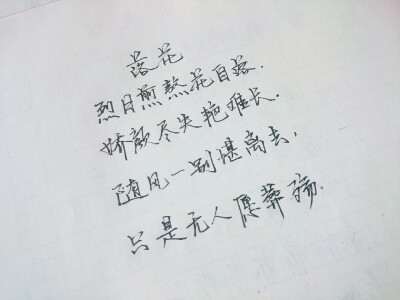 落花
烈日煎熬花自落.
娇颜尽失艳难长.
随风一别堪离去,
只是无人愿葬殇.